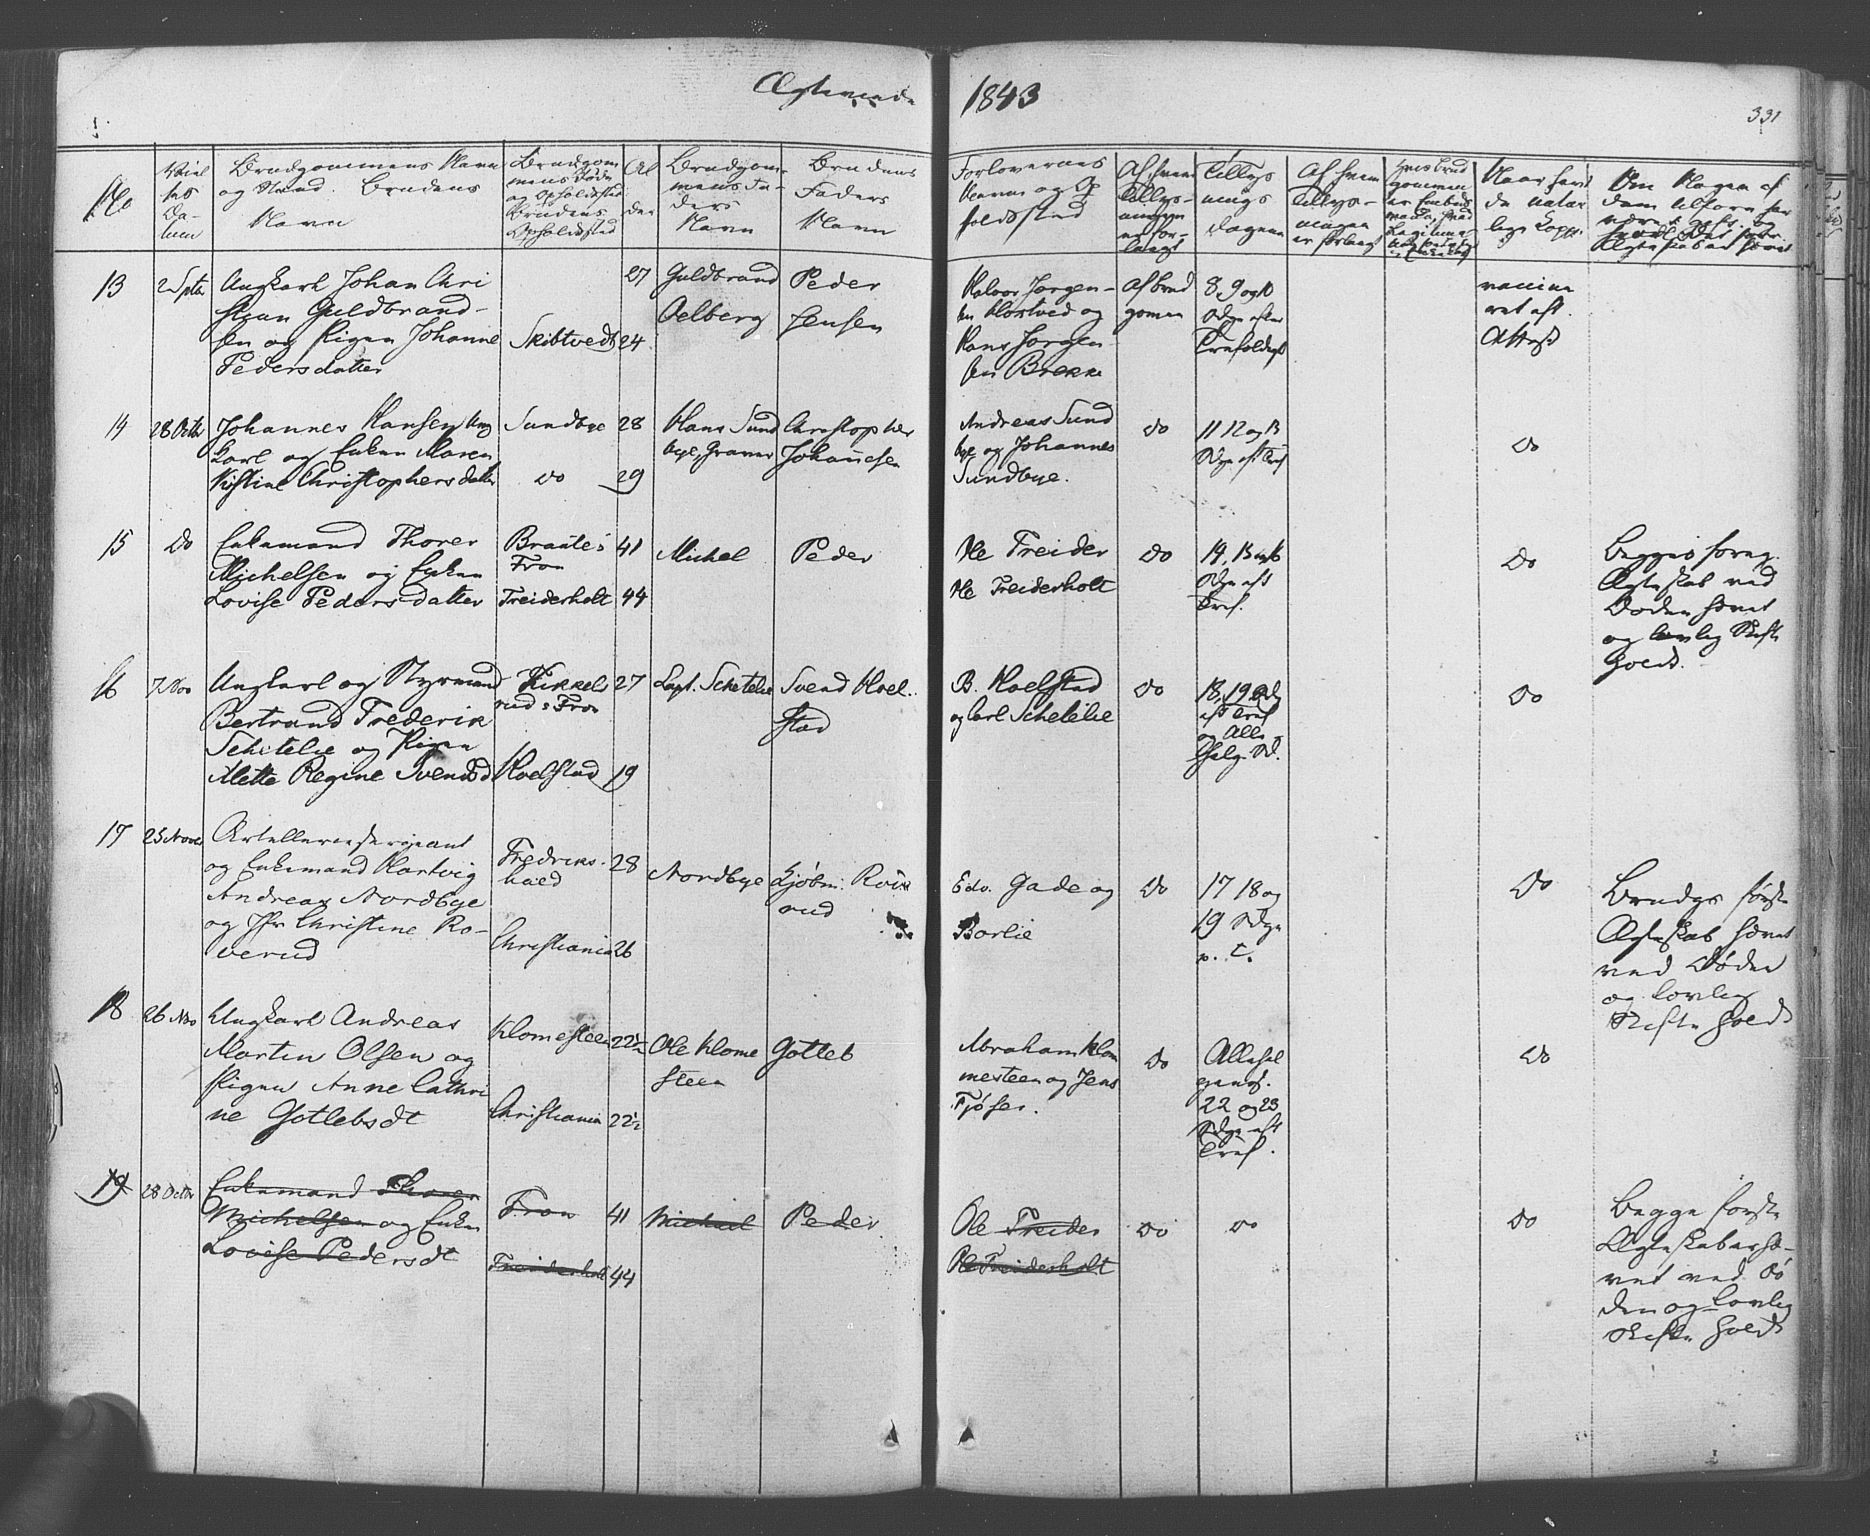 Ægteviede 1843
331
No
Vielsens Datum
Brudgommens Navn og Stand. Brudens Navn
Brudgommens Føde og Opholdssted Brudens Opholdssted
Alder
Brudgommens Faders Navn
Brudens Faders Navn
Forlovernes Navne og Opholdssted
Af hvem Tillysningen er forlangt
Tillysnings Dagene
13
2 Sptbr
Ungkarl Johan Chri
stian Guldbrand-
sen og Pigen Johanne
Pedersdatter
Skibtvedt
27
24
Guldbrand
Oelberg
Peder
Jensen
Halvor Jørgen-
sen Klostved og
Hans Jørgen
sen Brekke
Af Brud
gomen
8 9 og 10
Sdge efter
Trefoldigh
vaccine
ret eft.
Attest
14
28 Octbr
Johannes Hansen Ung
karl og Enken Maren
Kistine Christophersdatter
Sundbye
do
28
29
Hans Sund
bye, Graver
Christopher
Johannesen
Andreas Sund
bye og Johannes
Sundbye.
do
11 12 og 13
Sdge eft Tref
do
15
do
Enkemand Thorer
Michelsen og Enken
Lovise Pedersdatter
Braates
Fron
Treiderholt
41
44
Michel
Peder
Ole Treider
Ole Treiderholt
do
14, 15 og 16
Sdge eft
Tref.
do
Begges foreg.
Ægteskab ved
Døden hævet
og lovlig Skifte
holdt.
16
7 Nov
Ungkarl og Styrmand
Bertrand Frederik
Schetelie og Pigen
Mette Regine Svensd
Kikkels
rud i Fron
Hoelstad
27
19
Capt. Schetelie
Svend Hoel
stad
B. Hoelstad
og Carl Schetelie
do
18, 19 Sdg
eft Tref
og Alle
Helg. Sd.
do
17
23 Novbr
Artellerie sergeant
og Enkemand Hartvig
Andreas Nordbye
og Jfr Christine Ro-
verud
Fredriks-
hald
Christiania
28
26
Nordbye
Kjøbm. Rove
rud
Edv. Gade og
Borlie
do
17 18 og
19 Sdge
p. T.
do
Brudgs første
Ægteskab hævet
ved Døden
og lovlig
Skifte holdt
18
26 Nov
Ungkarl Andreas
Martin Olsen og
Pigen Anne Cathri
ne Gotlebsdt
Klomesteen
Christiania
22½
22½
Ole Klome
steen
Gotleb
Abraham Klom
mesteen og Jens
Tjøser.
do
Allehel
gensd.
22 og 23
Sdge eft
Tref.
do
19
28 Octbr
Enkemand Thorer
Michelsen og Enken
Lovise Pedersdt
Fron
Treiderholt
41
44
Michael
Peder
Ole Treider
Ole Treiderholt
do
do
do
Begge første
Ægteskaber hæ-
vet ved Dø
den og lovlig
Skifte holdt